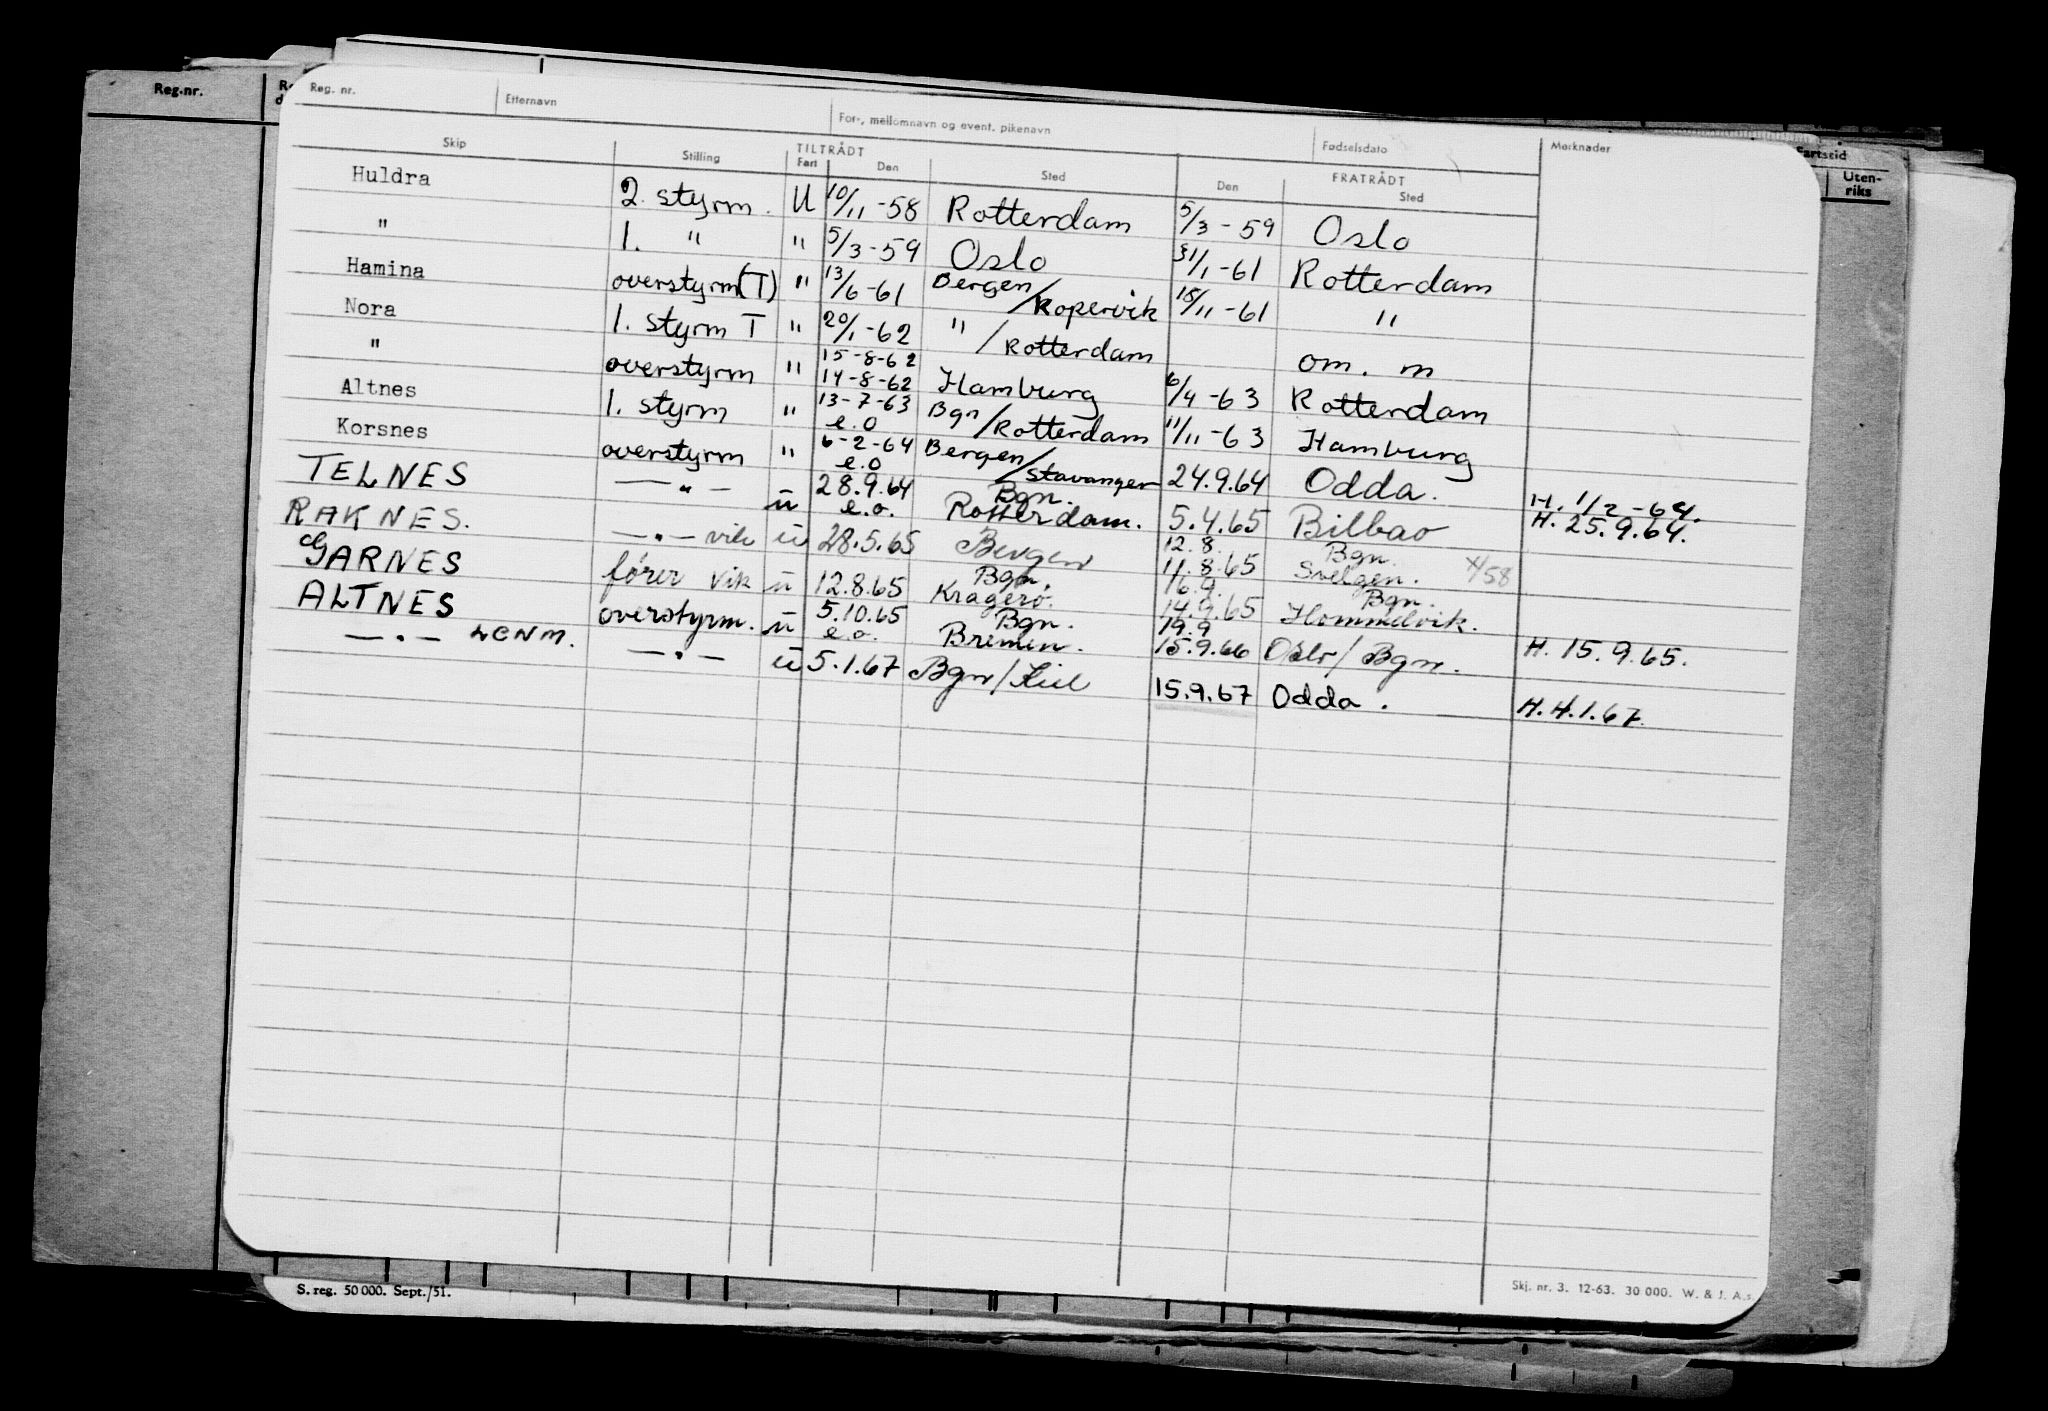 Reg.nr.
Reg. nr. Etternavn For-, mellomnavn og event. pikenavn Fødselsdato Merknader Fartstid
Uten-
riks
Skip Stilling TILTRÅDT FRATRÅDT
Fart Den Sted Den Sted
Huldra 2. styrm. U 10/11-58 Rotterdam 5/3-59 Oslo
" 1. " " 5/3-59 Oslo 31/1-61 Rotterdam
Hamina overstyrm(T) " 13/6-61 Bergen/Kopervik 18/11-61 "
Nora 1. styrm T " 20/1-62 " / Rotterdam om. m
" overstyrm " 15-8-62 14-8-62 Hamburg 6/4-63 Rotterdam
Altnes 1. styrm " 13-7-63 e.o Bgn/Rotterdam 11/11-63 Hamburg
Korsnes overstyrm " 6-2-64 e.o Bergen/Stavanger 24.9.64 Odda. H. 1/2-64.
TELNES —"— u 28.9.64 e.o. Bgn. Rotterdam. 5.4.65 Bilbao H. 25.9.64.
RAKNES. —"— vik u 28.5.65 Bergen 12.8. 11.8.65 Bgn. Svelgen. x/58
GARNES fører vik u 12.8.65 Bgn. Kragerø. 16.9. 14.9.65 Bgn. Hommelvik.
ALTNES overstyrm. u 5.10.65 e.o. Bgn. Bremen. 19.9 15.9.66 Oslo/Bgn. H. 15.9.65.
—"— LCNM. —"— u 5.1.67 Bgn/Kiel 15.9.67 Odda. H. 4.1.67.
S. reg. 50 000. Sept./51.
Skj. nr. 3. 12-63. 30 000. W. & J. A.s.